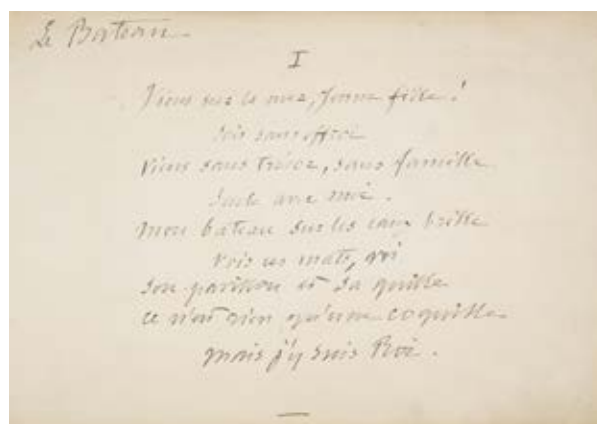 Le Bateau
I
Viens sur la mer, jeune fille !
Sois sans effroi
Viens sans trésor, sans famille
Seule avec moi.
Mon bateau sur les eaux brille
Vois ses mats, voi
Son pavillon et sa quille
ce n'est rien qu'une coquille
mais j'y suis Roi.